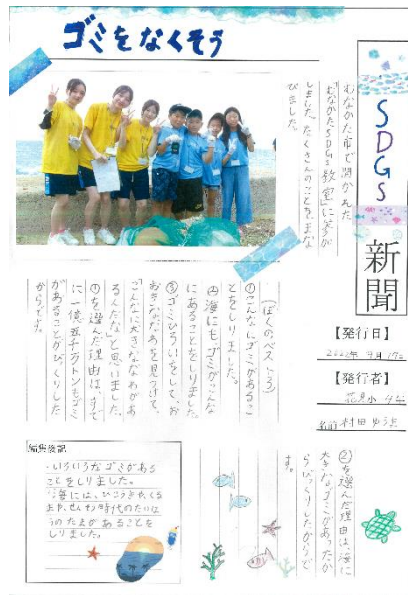 ゴミをなくそう
SDGS
新聞
【発行日】
【発行者】
名前 村田
むなかた市で開かれた
「むなかたSDGs教室」に参加
しました。たくさんのことをまな
びました。
(ぼくのベスト3)
①こんなにゴミがあるこ
とをしりました。
②海にも、ゴミがこんな
にあることをしりました。
③ゴミひろいをして、お
おきななわを見つけて、
「こんなに大きななわがあ
るんだな」と思いました。
①を選んだ理由は、すで
に一億五千万トンもゴミ
があることがびっくりした
からです。
②を選んだ理由は、海に
大きなゴミがあったか
らびっくりしたからで
す。
編集後記
・いろいろなゴミがある
ことをしりました。
・海には、ひこうきや、くる
まや、せんそう時代のたいほ
うのたまがあることを
しりました。